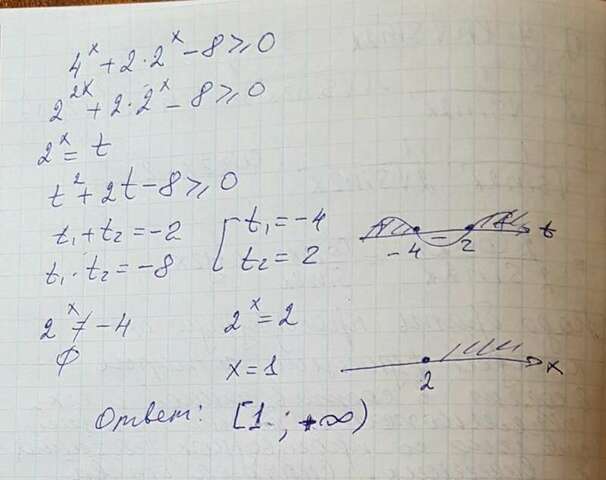 4^x + 2 · 2^x − 8 ⩾ 0
2^{2x} + 2 · 2^x − 8 ⩾ 0
2^x = t
t^2 + 2t − 8 ⩾ 0
t₁ + t₂ = −2
t₁ · t₂ = −8
[ t₁ = −4
t₂ = 2
+ − + t
−4 2
2^x ≠ −4
∅
2^x = 2
x = 1
2 x
Ответ: [1 ; +∞)